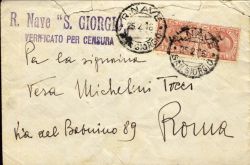 R. Nave "S. GIORGIO
VERIFICATO PER CENSURA
R. NAVE
25.2.16
S. GIORGIO
25.2.16
Per la signorina
Vera Michelini Tocci
Via del Babuino 89
Roma